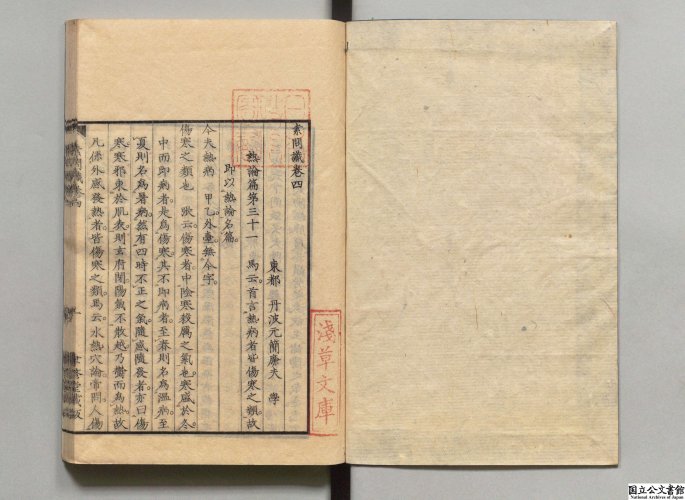 素問識卷四
東都 丹波元簡廉夫 學
熱論篇第三十一 馬云首言熱病者皆傷寒之類故
即以熱論名篇
今夫熱病 甲乙外臺無今字
傷寒之類也 張云傷寒者中陰寒殺厲之氣也寒盛於冬
中而即病者是爲傷寒其不即病者至春則名爲溫病至
夏則名爲暑病然有四時不正之氣隨感隨發者亦曰傷
寒寒邪束於肌表則玄府閉陽氣不散越乃鬱而爲熱故
凡係外感發熱者皆傷寒之類馬云水熱穴論帝問人傷
淺草文庫
国立公文書館
National Archives of Japan